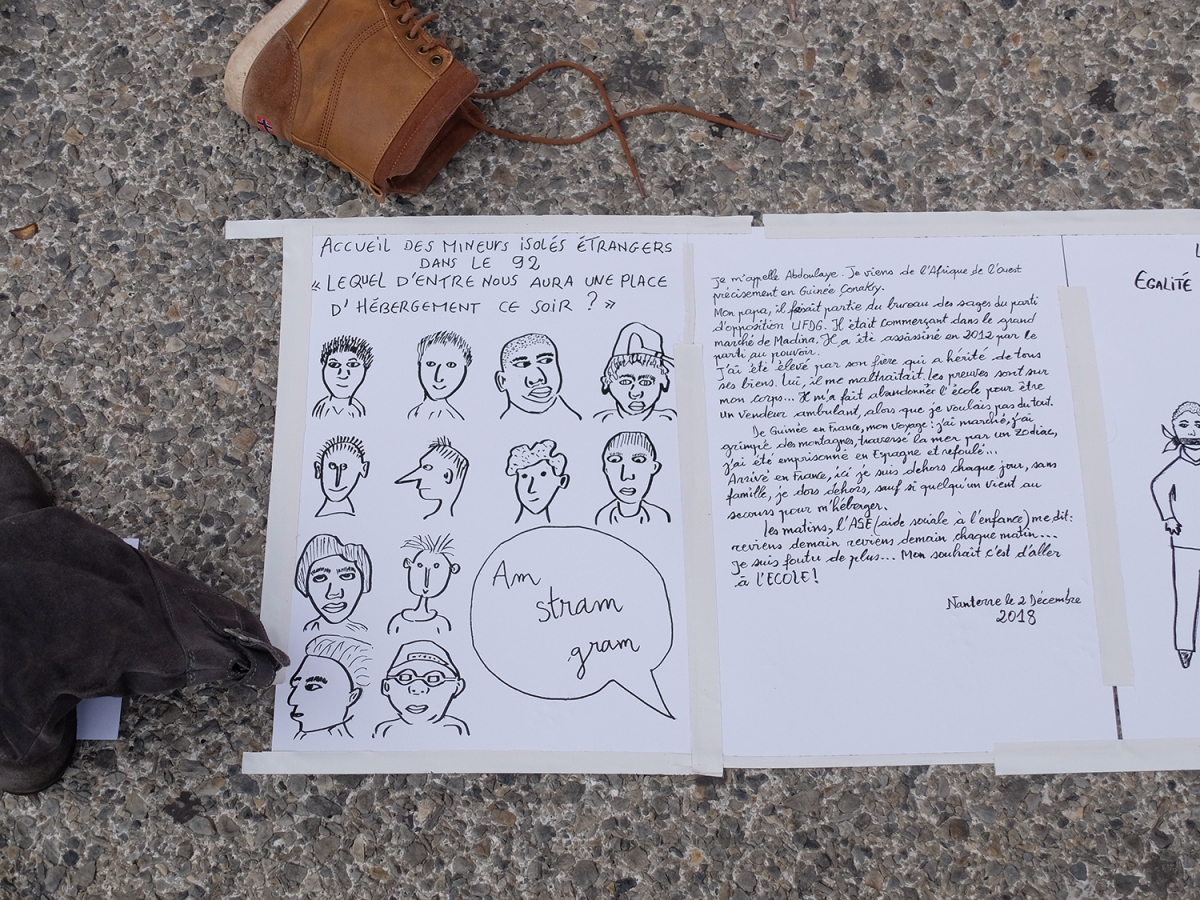 ACCUEIL DES MINEURS ISOLÉS ÉTRANGERS
DANS LE 92
« LEQUEL D'ENTRE NOUS AURA UNE PLACE
D'HÉBERGEMENT CE SOIR ? »
Am
stram
gram
Je m'appelle Abdoulaye. Je viens de l'Afrique de l'ouest
précisement en Guinée Conakry.
Mon papa, il faisait partie du bureau des sages du parti
d'opposition UFDG. Il était commerçant dans le grand
marché de Madina. Il a été assassiné en 2012 par le
parti au pouvoir.
J'ai été élevé par son frère qui a hérité de tous
ses biens. Lui, il me maltraitait. Les preuves sont sur
mon corps... Il m'a fait abandonner l'école pour être
un vendeur ambulant, alors que je voulais pas du tout.
De Guinée en France, mon voyage : j'ai marché, j'ai
grimpé des montagnes, traversé la mer par un zodiac,
j'ai été emprisonné en Espagne et refoulé...
Arrivé en France, ici je suis dehors chaque jour, sans
famille, je dors dehors, sauf si quelqu'un vient au
secours pour m'héberger.
Les matins, l'ASE (aide sociale à l'enfance) me dit :
reviens demain reviens demain chaque matin...
Je suis foutu de plus... Mon souhait c'est d'aller
à l'ECOLE !
Nanterre le 2 Décembre
2018
EGALITÉ